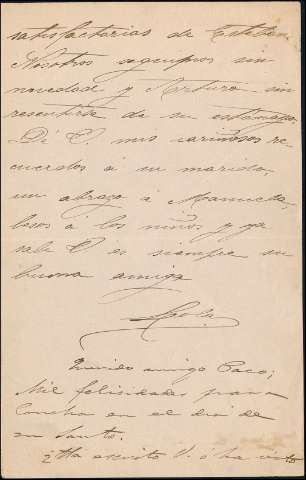 satisfactorias de Esteban.
Nosotros seguimos sin
novedad y Arturo sin
resentirse de su estómago.
Dé V. mis cariñosos re-
cuerdos á su marido,
un abrazo á Manuela
besos á los niños y ya
sabe V. es siempre su
buena amiga

Querido amigo Paco;
Mil felicidades para
Concha en el dia de
su Santo.
¿Ha escrito V. ó ha visto